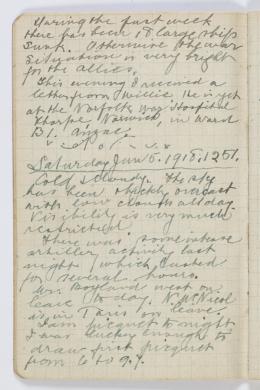 During the past week
there has been 18 large ships
sunk. Otherwise the war
situation is very bright
for the allies.
This evening I received a
letter from Millie. He is yet
at the Norfolk War Hospital
Thorpe, Norwich, in ward
B1. Anzac.
Saturday Jan 5. 1918. 1251.
Cold & cloudy. The sky
has been thickly overcast
with low clouds all day.
Visibility is very much
restricted.
There was some intense
artillery activity last
night which lasted
for several hours.
Boyland went on
leave to day. N. McNicol
is in Paris on leave.
I am picquet to night.
I was lucky enough to
draw first picquet
from 6 to 9.